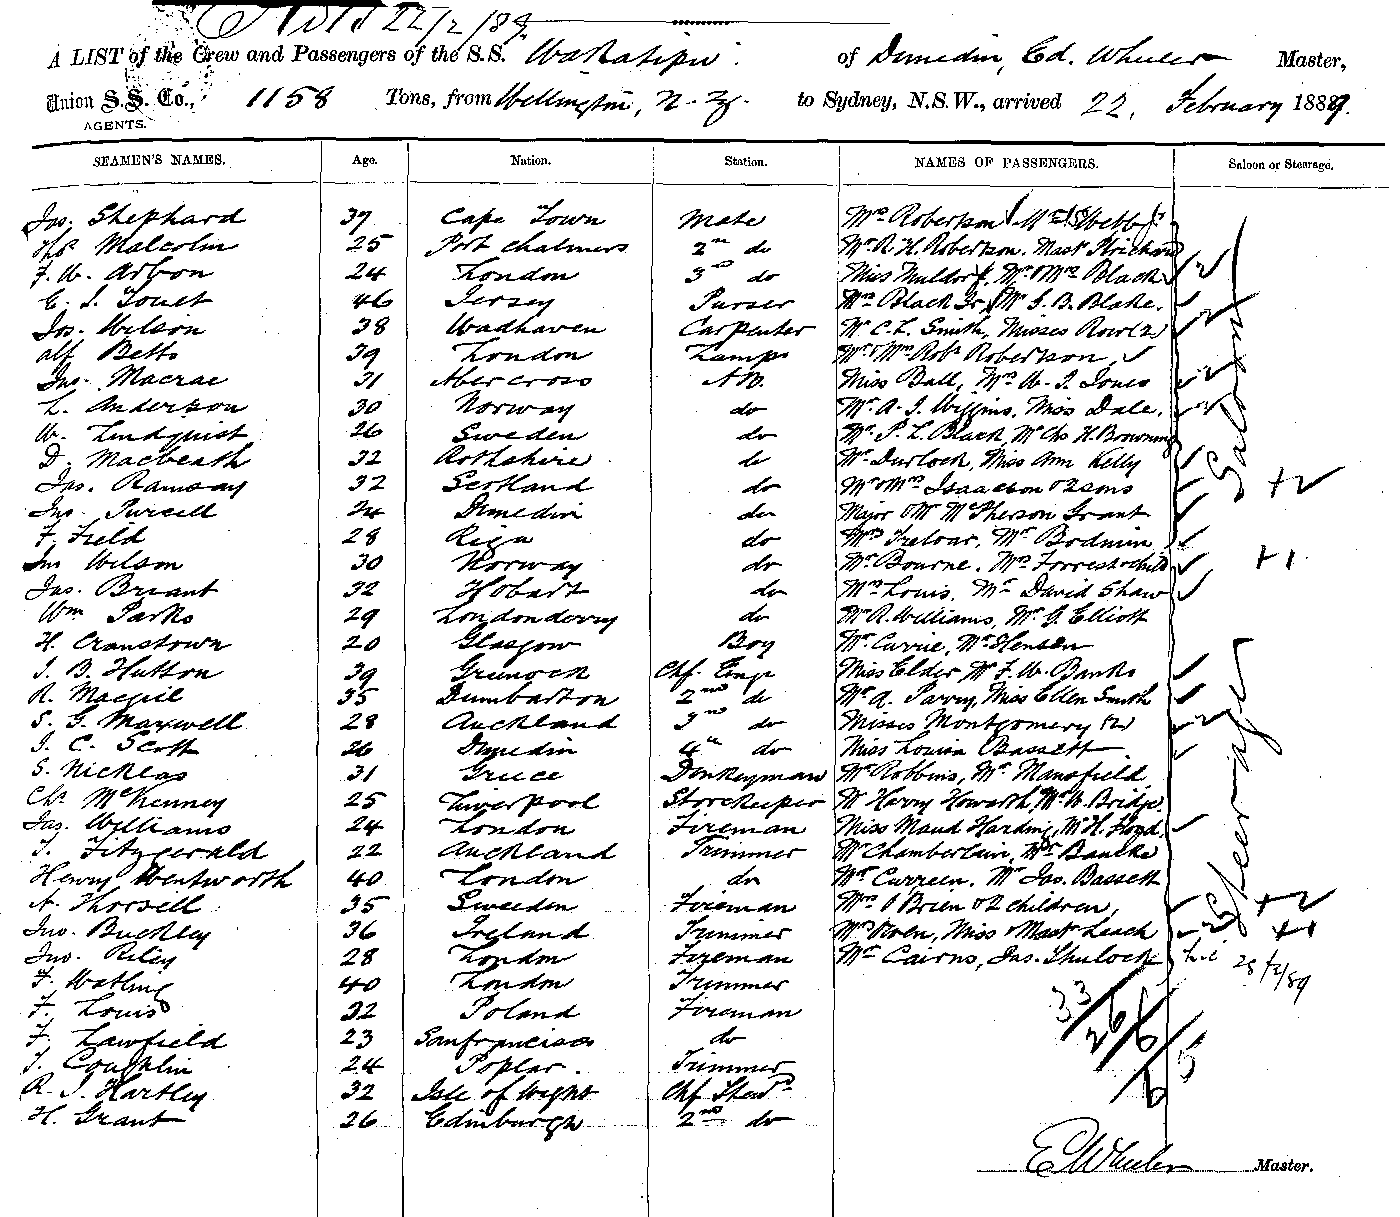 22/2/89.
A LIST of the Crew and Passengers of the S.S. Wakatipu. of Dunedin, Ed. Wheeler Master,
Union S.S. Co., 1158 Tons, from Wellington, N. Z. to Sydney, N.S.W., arrived 22. February 1889.
AGENTS.
SEAMEN'S NAMES. Age. Nation. Station. NAMES OF PASSENGERS. Saloon or Steerage.
Jas. Shephard 37 Cape Town Mate Mrs Robertson Mrs Webb
Malcolm 25 Port Chalmers 2nd do Mr R. H. Robertson, Mast
F. W. Arbon 24 London 3rd do Miss Muldorf, Mr & Mrs Black
46 Jersey Purser Mrs Black Jr, Mr G. B. Blake.
Jas. Wilson 38 Carpenter Mr C. L. Smith, Misses Row (2)
Alf Betts 39 London Lamps Mr & Mrs Robt Robertson,
Jno. Macrae 31 Abercross A B. Miss Ball, Mrs W. J. Jones
L. Anderson 30 Norway do Mr. A. J. Wiggins, Miss Dale.
W. Lindquist 26 Sweden do Mr. P. L. Black, Mr Chs H. Browning
D. Macbeath 32 do Mr Durlock, Miss Ann Kelly
Jas. Ramsay 32 Scotland do Mr & Mrs Isaacson & 2 sons
Jno. Purcell 24 Dunedin do Major & Mr McPherson Grant
F. Field 28 Riga do Mrs Treloar, Mr Bodmin
Jno Wilson 30 Norway do Mr Bourne, Mrs Forrest & child
Jas. Briant 32 Hobart do Mrs Louis, Mr David Shaw
Wm Parks 29 Londonderry do Mr R. Williams, Mr G. Elliott
H. Cranstown 20 Glasgow Boy Mr Currie, Mr Hensen
J. B. Hutton 39 Greenock Chf. Engr Miss Elder, Mr F. W. Banks
R. Macgill 35 Dumbarton 2nd do Mr A. Parry, Miss Ellen Smith
S. G. Maxwell 28 Auckland 3rd do Misses Montgomery (2)
J. C. Scott 26 Dunedin 4th do Miss Louisa Bassett
S. Nicklas 31 Greece Donkeyman Mr Robbins, Mr Mansfield
Chs McKenney 25 Liverpool Storekeeper Mr Harry Howarth, Mr W. Bridge
Jas. Williams 24 London Fireman Miss Maud Harding, Mr H. Floyd
T. Fitzgerald 22 Auckland Trimmer Mr Chamberlain, Mr Bancks
Henry Wentworth 40 London do Mr Curreen, Mr Jas. Bassett
A. Thorsell 35 Sweeden Fireman Mrs O'Brien & 2 children,
Jno. Buckley 36 Ireland Trimmer Mr Owen, Miss & Mast Leach
Jno. Riley 28 London Fireman Mr Cairns, Jas. Shulock
F. Watling 40 London Trimmer
F. Louis 32 Poland Fireman
F. Lawfield 23 Sanfrancisco do
J. Coughlin 24 Poplar. Trimmer
R. J. Hartley 32 Isle of Wight Chf Stewd
H. Grant 26 Edinburgh 2nd do
Saloon
+2
+1
Steerage
+2
+1
28/2/89
33
26/6
65
E Wheeler Master.